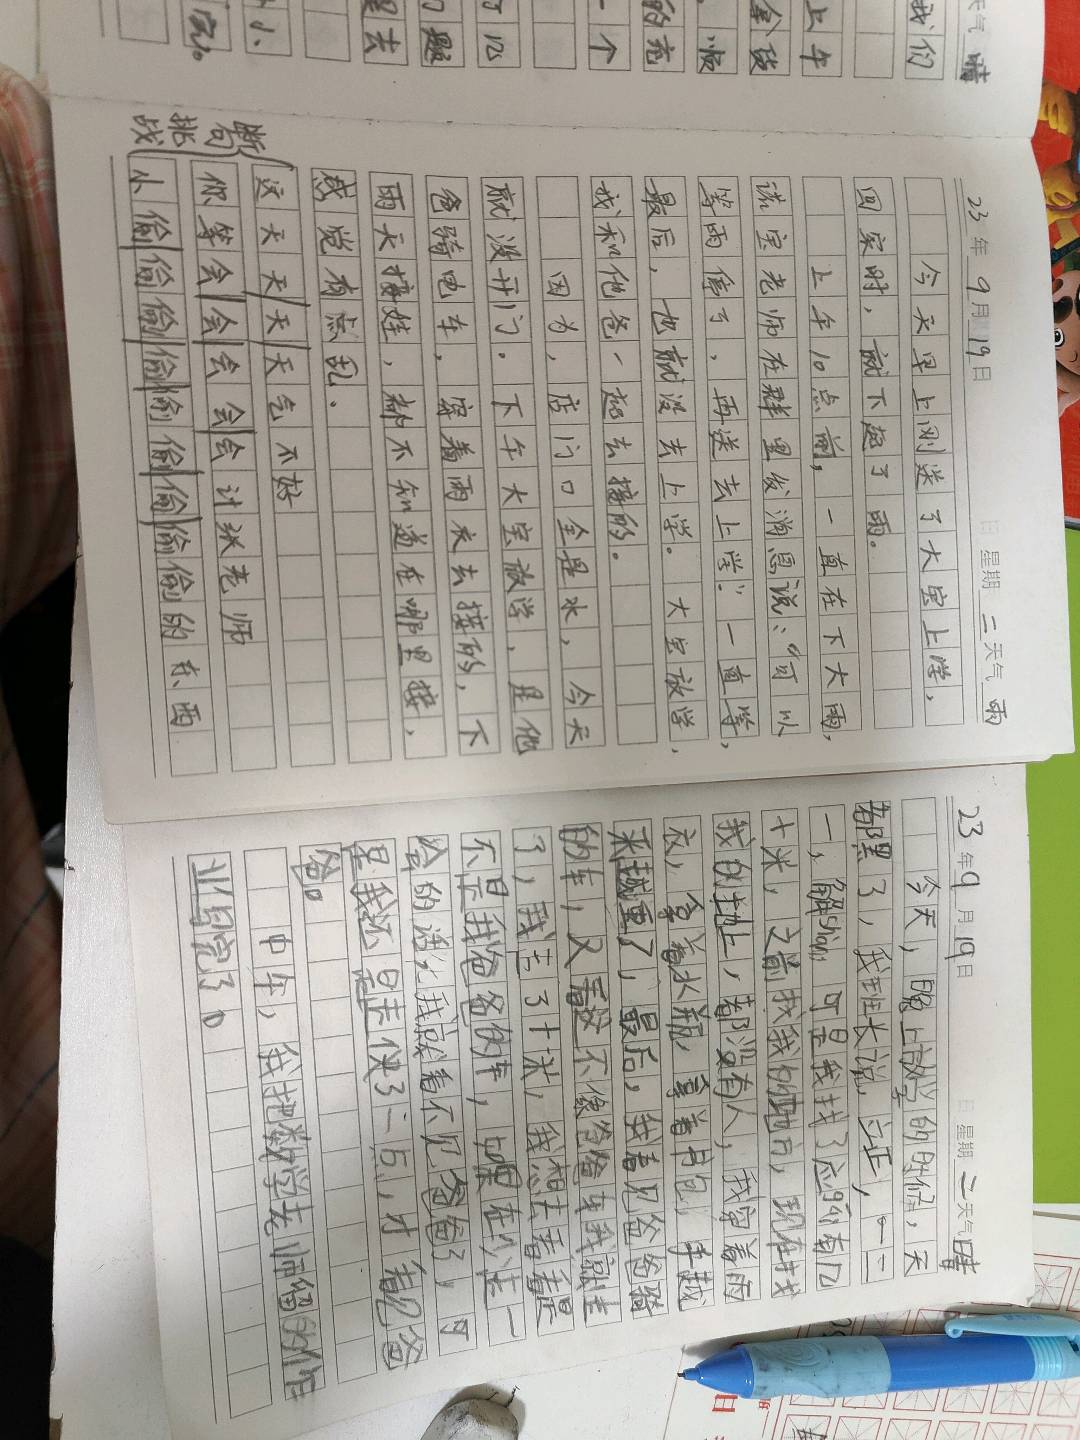 23年9月19日 星期二天气雨
今天早上刚送了大宝上学,
回家时,就下起了雨。
上午10点前,一直在下大雨,
洪宝老师在群里发消息说:“可以
等雨停了,再送去上学”一直等,
最后,也就没去上学。大宝放学,
我和他爸一起去接的。
因为,店门口全是水,今天
就没开门。下午大宝放学,是他
爸骑电车,穿着雨衣去接的,下
雨天接娃,都不知道在哪里接,
感觉有点乱。
断句挑战
这天天天天气不好
你等会会会会会计张老师
小偷偷偷偷偷偷偷偷偷的东西
23年9月19日 星期二天气晴
今天,晚上放学的时候,天
都黑了,我班长说,立正,一二
一,解sàn,可是我找了应gāi有几
十米,之前找我的地方,现在找
我的土地上,都没有人,我穿着雨
衣,拿着水瓶,拿着书包,手越
来越重了,最后,我看见爸爸骑
的车,又看这不像爸爸车我就走
了,我走了十米,我想去看看是
不是我爸爸的车,如果在少走一
会的话,我就看不见爸爸了,可
是我还是走快了一点,才看见爸
爸。
中午,我把数学老师留的作
业写完了。
天气晴
我们
上午
一个